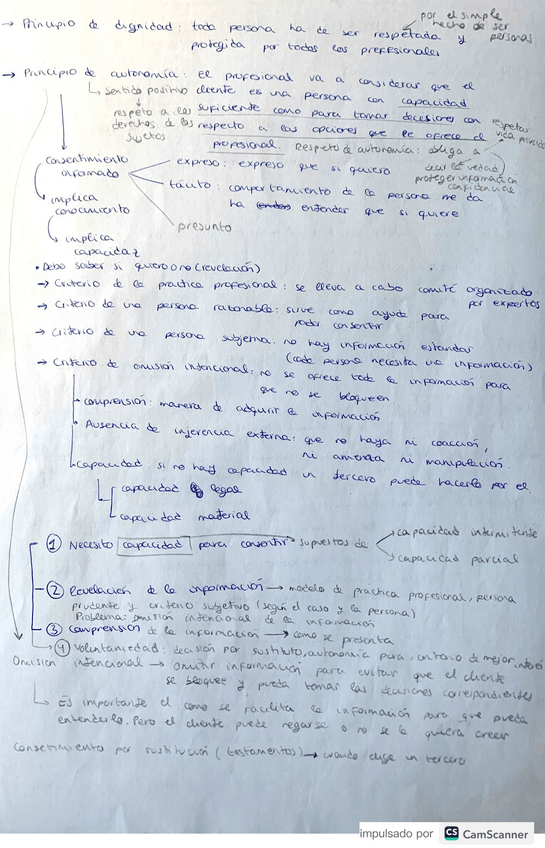 → Principio de dignidad: toda persona ha de ser respetada y
por el simple hecho de ser personas
protegida por todos los profesionales
→ Principio de autonomía: el profesional va a considerar que el
↳ sentido positivo cliente es una persona con capacidad
respeto a los suficiente como para tomar decisiones con
derechos de los respecto a las opciones que le ofrece el
sujetos
respetar vida privada
profesional. Respeto de autonomía: obliga a
decir la verdad
proteger información
confidencial
consentimiento informado
expreso: expreso que si quiero
tácito: comportamiento de la persona me da
ha entender que si quiere
presunto
implica conocimiento
implica capacidaz
• Debo saber si quiero o no (revelación)
→ Criterio de la practica profesional: se lleva a cabo comité organizado
por expertos
→ Criterio de una persona razonable: sirve como ayuda para
poder consentir
→ Criterio de una persona subjetiva: no hay información estandar
(cada persona necesita una información)
→ Criterio de omisión intencional: no se ofrece toda la información para
que no se bloqueen
comprensión: manera de adquirir la información
Ausencia de injerencia externa: que no haya ni coacción,
ni amenaza ni manipulación.
Capacidad. si no hay capacidad un tercero puede hacerlo por el.
capacidad legal
capacidad material
① Necesito capacidad para consentir → supuestos de
capacidad intermitente
capacidad parcial
② Revelación de la información → modelo de práctica profesional, persona
prudente y criterio subjetivo (según el caso y la persona)
Problema: omisión intencional de la información
③ Comprensión de la información → como se presenta
④ Voluntariedad: decisión por sustituto, autonomía pura, criterio de mejor interés
Omision intencional → omitir información para evitar que el cliente
se bloquee y pueda tomar las decisiones correspondientes
↳ Es importante el como se facilita la información para que pueda
entenderla. Pero el cliente puede negarse o no se la quiera creer
Consetimiento por sustitución (testamentos) → cuando elige un tercero
impulsado por CS CamScanner